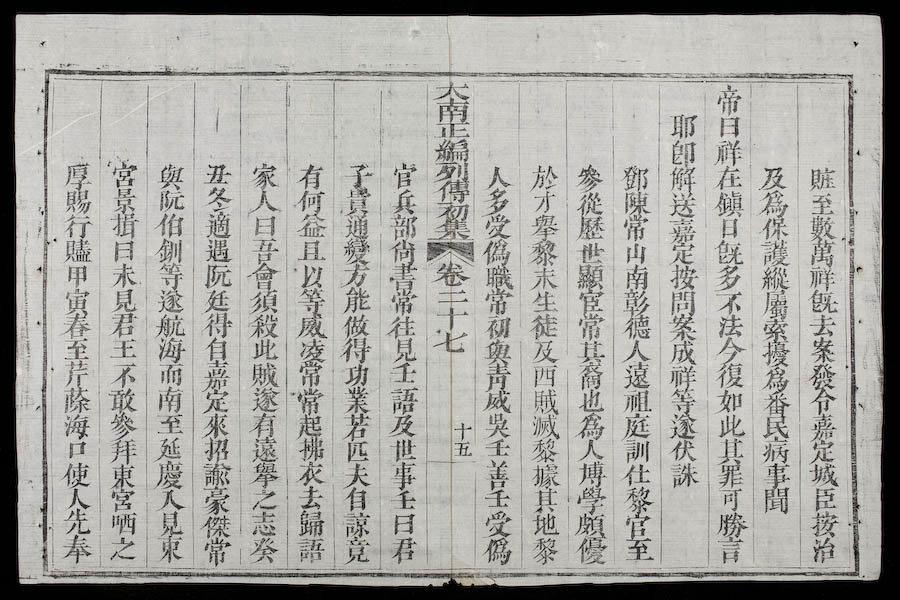 賍至數萬祥旣去案發令嘉定城臣按治
及為保護縱屬索擾為番民病事聞
帝曰祥在鎮日旣多不法今復如此其罪可勝言
耶卽解送嘉定按問案成祥等遂伏誅
鄧陳常山南彰德人遠祖庭訓仕黎官至
參從歷世顯宦常其裔也為人博學頗優
於才舉黎末生徒及西賊滅黎據其地黎
人多受偽職常初與靑威吳壬善壬受偽
大南正編列傳初集 卷二十七 十五
官兵部尙書常往見壬語及世事壬曰君
子貴通變方能做得功業若匹夫自諒竟
有何益且以等威凌常常起拂衣去歸語
家人曰吾會須殺此賊遂有遠擧之志癸
丑冬適遇阮廷得自嘉定來招諭豪傑常
與阮伯釧等遂航海而南至延慶入見東
宮景指曰未見君王不敢參拜東宮哂之
厚賜行贐甲寅春至芹蒢海口使人先奉